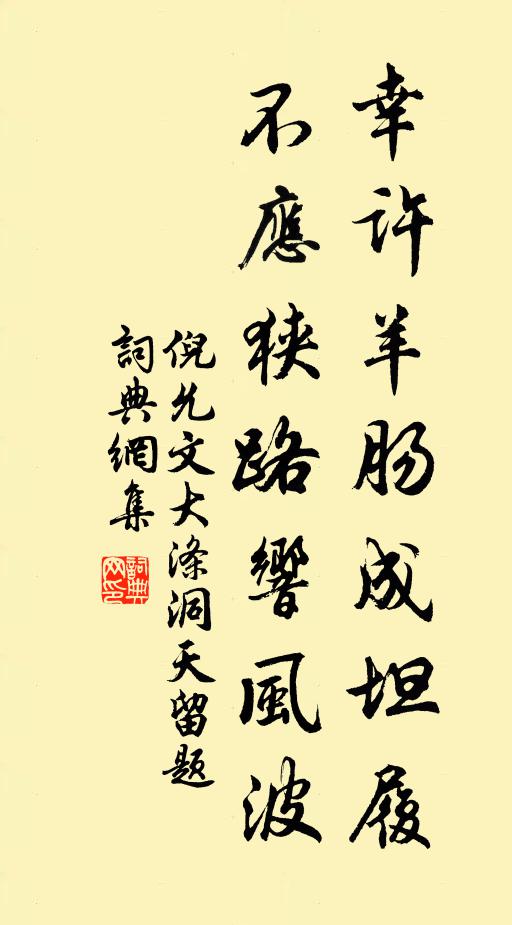 幸許羊肠成坦履
不應狹路響風波
倪允文大滌洞天留題
詞典網集
詞典网印